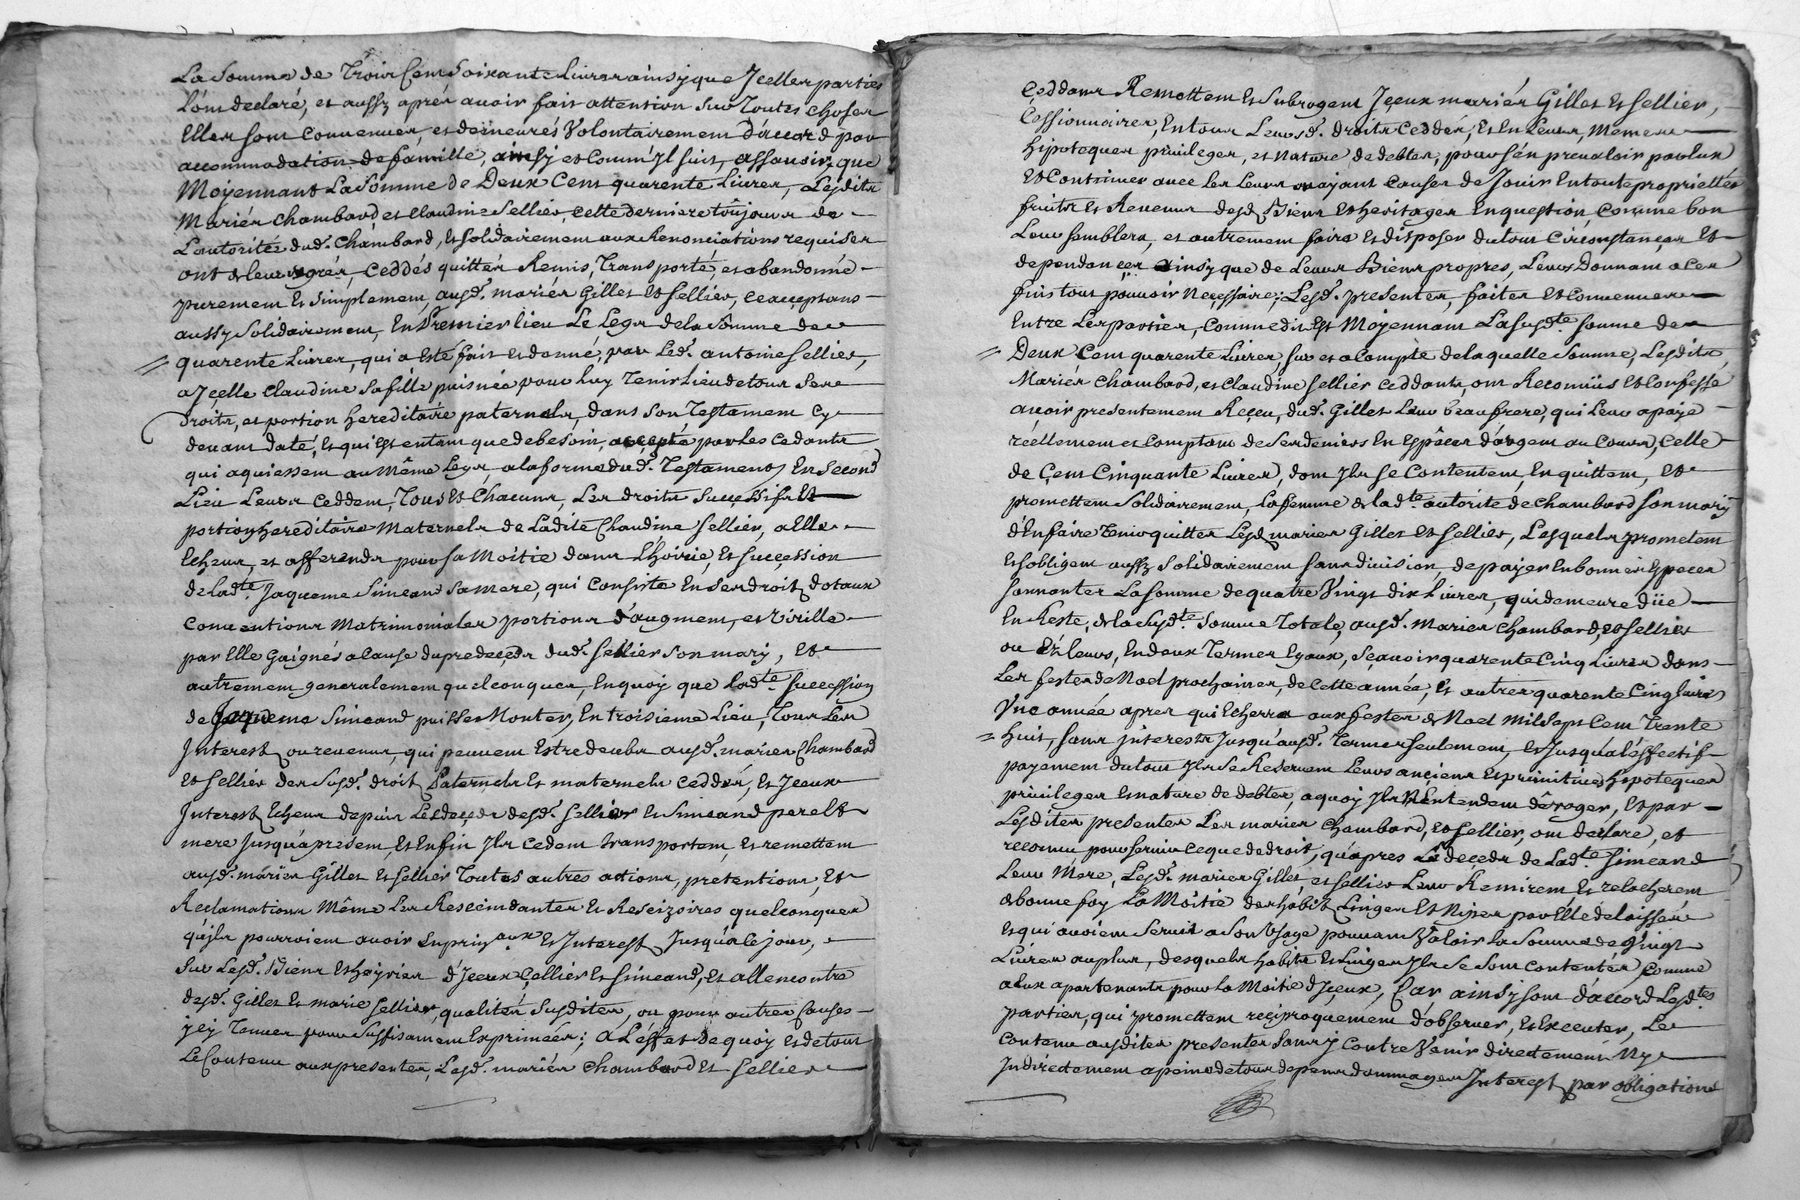 La Somme de Trois Cens Soixante Livres ainsy que Jcelles parties
l'ont declaré, et aussy aprés avoir fait attention sur Toutes choses
Elles sont Convenues et demeurés Volontairement d'accord par
accommodation de famille, ainsy et Comm'Jl suit, assavoir, que
Moyennant La Somme de Deux Cens quarente Livres, Lesdits
Mariés Chambard et Claudine Sellier, cette derniere toûjours de
L'autorité dud. Chambard, Et solidairement aux Renonciations requises
ont de leurs grés, Ceddés quittés Remis, Transporté, et abandonné
purement Et simplement, ausd. mariés Gillet Et Sellier, ce acceptans
aussy solidairement, En Premier lieu Le Legs de la Somme de
quarente Livres, qui a Esté fait et donné, par Led. antoine Sellier,
a Jcelle Claudine sa fille puisnée pour luy Tenir Lieu de tous Ses
droits, et portion hereditaire paternels, dans son Testament Cy
devant daté, Et qui Est entant que de besoin, accepté par les Cedants
qui aquiessent au Même Legs, a la forme dud. Testament, En Second
Lieu Leurs Ceddent, Tous Et Chacuns, Les droits Successifs Et
portion hereditaire Maternels de Ladite Claudine Sellier, a Elle
Echeus, et afferends pour sa Moitié dans L'hoirie, Et succession
de Ladte. Jaqueme Simeand sa mere, qui Consiste En Ses droits dotaux
Conventions Matrimoniales portions d'augment, et Virille
par Elle Gaignés a Cause du predecéds dud. Sellier son mary, Et
autrement generalement quelconques, En quoy que Ladte. succession
de Jaqueme Simeand puisse Monter, En troisieme Lieu, Tous Les
Interests ou revenus, qui peuvent Estre deubs ausd. mariés Chambard
Et Sellier des susd. droits Paternels Et maternels Ceddés, Et Jceux
Interests Echeus depuis Le decéds desd. Sellier Et Simeand pere Et
mere Jusqu'a present, Et Enfin Jls Cedent transportent, Et remettent
ausd. mariés Gillet Et Sellier Toutes autres actions, pretentions, Et
Reclamations Même Les Rescindantes Et Rescizoires quelconques
qu'jls pourroient avoir En prin.aux Et Interests Jusqu'a le jour,
Sur Lesd. Biens Et hoyries d'Jceux Sellier Et Simeand, Et allencontre
desd. Gillet Et marie Sellier, qualités susdites, ou pour autres Causes
jcy Tenues pour suffisament Exprimées; a L'effet de quoy Et de tout
Le Contenu aux presentes, Lesd. mariés Chambard Et Sellier
Ceddans Remettent Et subrogent Jceux mariés Gillet Et Sellier,
Cessionnaires, En tous Leursd. droits Ceddés, Et En Leurs, Mêmes
hipoteques privileges, et Nature de debtes, pour s'en prevaloir par Eux
Et Continuer avec les Leurs ou ayant Causes de Jouir En toute propriettés
fruits Et Revenus desd. Biens Et heritages En question, Comme bon
Leur semblera, et autrement faire Et disposer du tout Circonstances Et
dependances ainsy que de Leurs Biens propres, Leurs Donnant a Ces
fins tous pouvoir Necessaire; Lesd. presentes, faites Et Convenues
Entre Les parties, Comme dit Est Moyennant La susdte. somme de
Deux Cent quarente Livres, sur et a Compte de laquelle Somme, Lesdits
Mariés Chambard, et Claudine Sellier Ceddants, ont Reconnüs Et Confessé
avoir presentement Reçeu, dud. Gillet Leur beau frere, qui Leur a payé
réellement et Comptant de Ses deniers En Espêces d'argent au Cours, Celle
de Cent Cinquante Livres, dont Jls se Contentent, En quittent, Et
promettent Solidairement, La femme de Ladte. autorité de Chambard son mary
d'En faire Tenir quittes Lesd. mariés Gillet Et Sellier, Lesquels prometent
Et s'obligent aussy solidairement sans division, de payer En bonnes Especes
sonnantes La somme de quatre Vingt dix Livres, qui demeure düe
En Reste, de la susdte. Somme Totale, ausd. Mariés Chambard, et Sellier
ou Ez leurs, En deux Termes Egaux, Sçavoir quarente Cinq Livres dans
Les festes de Noel prochaines, de Cette année, Et autres quarente Cinq Livres
Vne année apres qui Echerra aux festes de Noel Mil Sept Cent Trente
huit, sans jnterests Jusqu'ausd. Termes seulement, Et Jusqu'a l'effectif
payement du tout Jls Se Reservent Leurs anciens Et primitives hipoteques
privileges Et nature de debtes, a quoy Jls N'Entendent déroger, Et par
Lesdites presentes Les mariés Chambard, Et Sellier, ont declaré, et
reconnu pour servir Ce que de droit, qu'apres Le decéds de Ladte. Simeand
Leur Mere, Lesd. mariés Gillet, et Sellier Leur Remirent, Et relacherent
de bonne foy La Moitié des habits Linges Et Nipes par Elle delaissés
Et qui avoient Servit a Son Usage pouvant Valoir La Somme de Vingt
Livres au plus, desquels habits Et Linges Jls Se Sont Contentés, Comme
a Eux apartenants pour La Moitié d'Jceux, Car ainsy sont d'accord Lesdtes
parties, qui promettent reciproquement d'observer, Et Executer, Le
Contenu ausdites presentes sans y Contre Venir directement Ny
Indirectement a peine de tous depens dommages Interests par obligations